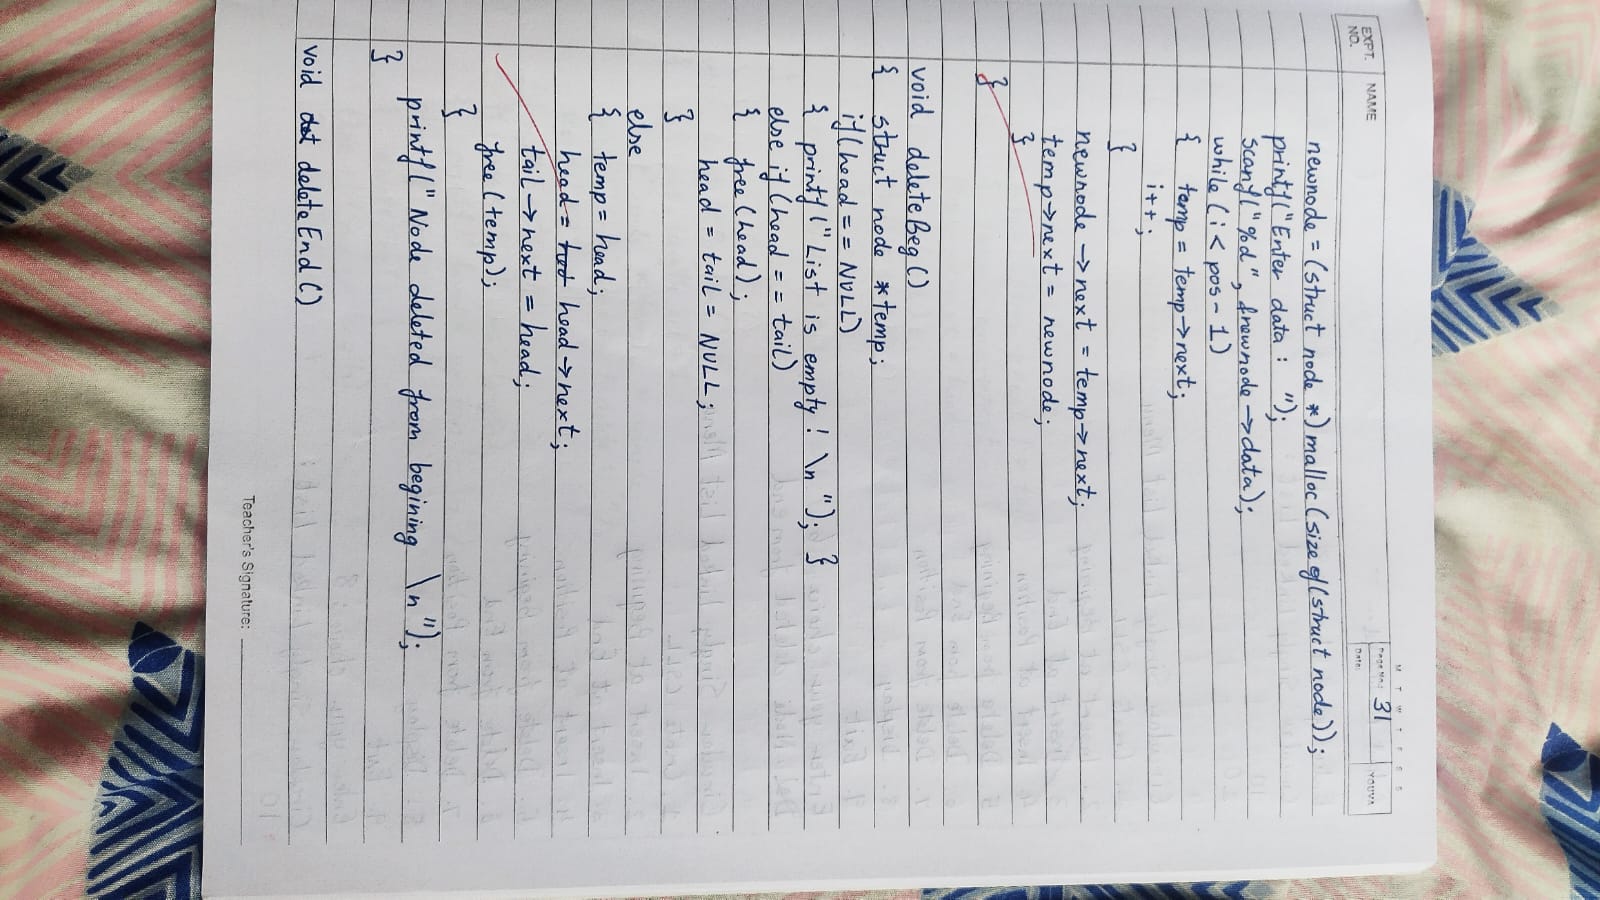 M T W T F S S
EXPT. NO. NAME Page No.: 31 YOUVA
Date:
newnode = (struct node *) malloc (size of (struct node));
printf("Enter data : ");
scanf("%d", &newnode->data);
while (i < pos - 1)
{ temp = temp->next;
i++;
}
newnode -> next = temp->next;
temp->next = newnode;
}
}
void deleteBeg ()
{ struct node *temp;
if (head == NULL)
{ printf ("List is empty! \n "); }
else if (head == tail)
{ free (head);
head = tail = NULL;
}
else
{ temp = head;
head = head->next;
tail->next = head;
free (temp);
}
printf (" Node deleted from begining \n");
}
void deleteEnd ()
Teacher's Signature: